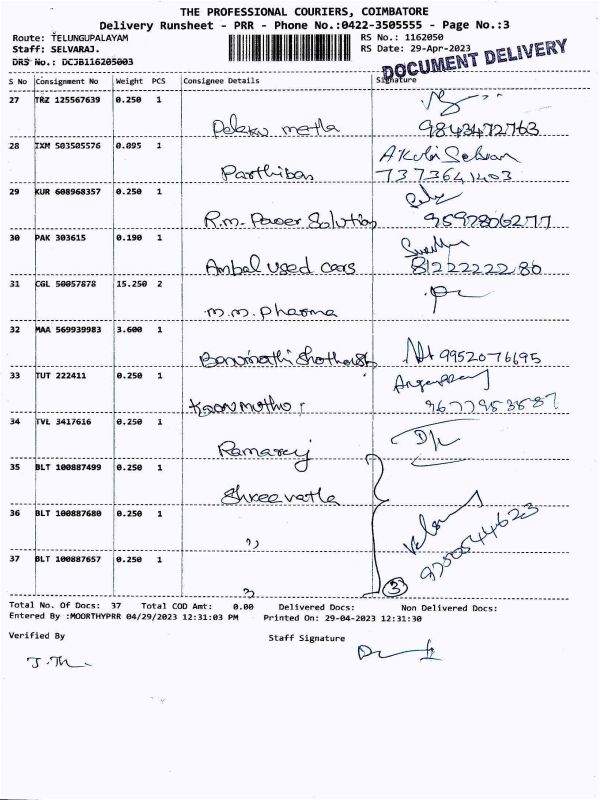 THE PROFESSIONAL COURIERS, COIMBATORE
Delivery Runsheet - PRR - Phone No.:0422-3505555 - Page No.:3
Route: TELUNGUPALAYAM RS No.: 1162050
Staff: SELVARAJ. RS Date: 29-Apr-2023
DRS No.: DCJB116205003
DOCUMENT DELIVERY
S No Consignment No Weight PCS Consignee Details Signature
27 TRZ 125567639 0.250 1
metla 9843472763
28 IXM 503505576 0.095 1
Parthiban 7373641403
29 KUR 608968357 0.250 1
R.m. Power Solution 9597806277
30 PAK 303615 0.190 1
Ambal used cars 8122222280
31 CGL 50057878 15.250 2
m.m. pharma
32 MAA 569939983 3.600 1
9952076695
33 TUT 222411 0.250 1
34 TVL 3417616 0.250 1
Ramaraj
35 BLT 100887499 0.250 1
Shree vatla
36 BLT 100887680 0.250 1
,,
9750544623
37 BLT 100887657 0.250 1
,, 3
Total No. Of Docs: 37 Total COD Amt: 0.00 Delivered Docs: Non Delivered Docs:
Entered By :MOORTHYPRR 04/29/2023 12:31:03 PM Printed On: 29-04-2023 12:31:30
Verified By Staff Signature